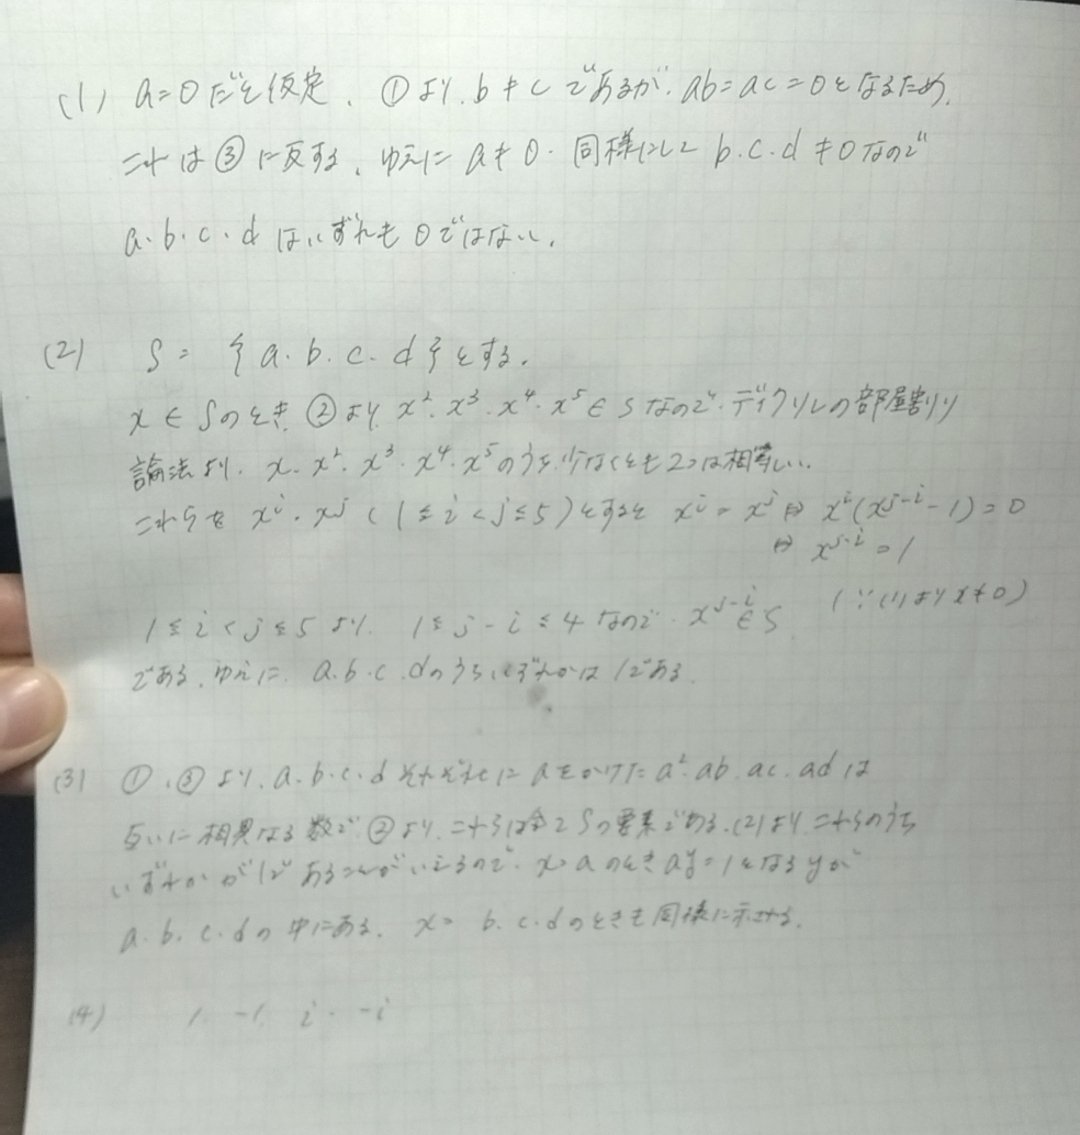 (1) a=0だと仮定、①より、b≠cであるが、ab=ac=0となるため、
これは③に反する、ゆえにa≠0. 同様にして b.c.d≠0なので
a.b.c.dはいずれも0ではない、
(2) S = {a.b.c.d}とする.
x∈Sのとき、②より x².x³.x⁴.x⁵∈Sなので、ディクリレの部屋割り
論法より、x.x².x³.x⁴.x⁵のうち少なくとも2つは相等しい、
これらを xⁱ.xʲ (1≦i<j≦5)とすると xⁱ=xʲ⇔xⁱ(xʲ⁻ⁱ-1)=0
⇔ xʲ⁻ⁱ=1
(∵(1)よりx≠0)
1≦i<j≦5より、1≦j-i≦4なので、xʲ⁻ⁱ∈S
である、ゆえに、a.b.c.dのうちいずれかは1である.
(3) ①.③より、a.b.c.dそれぞれにaをかけたa².ab.ac.adは
互いに相異なる数で②より、これらは全てSの要素である.(2)より、これらのうち
いずれかが1であることがいえるので、x=aのときay=1となるyが
a.b.c.dの中にある. x=b.c.dのときも同様に示せる.
(4) 1. -1. i. -i